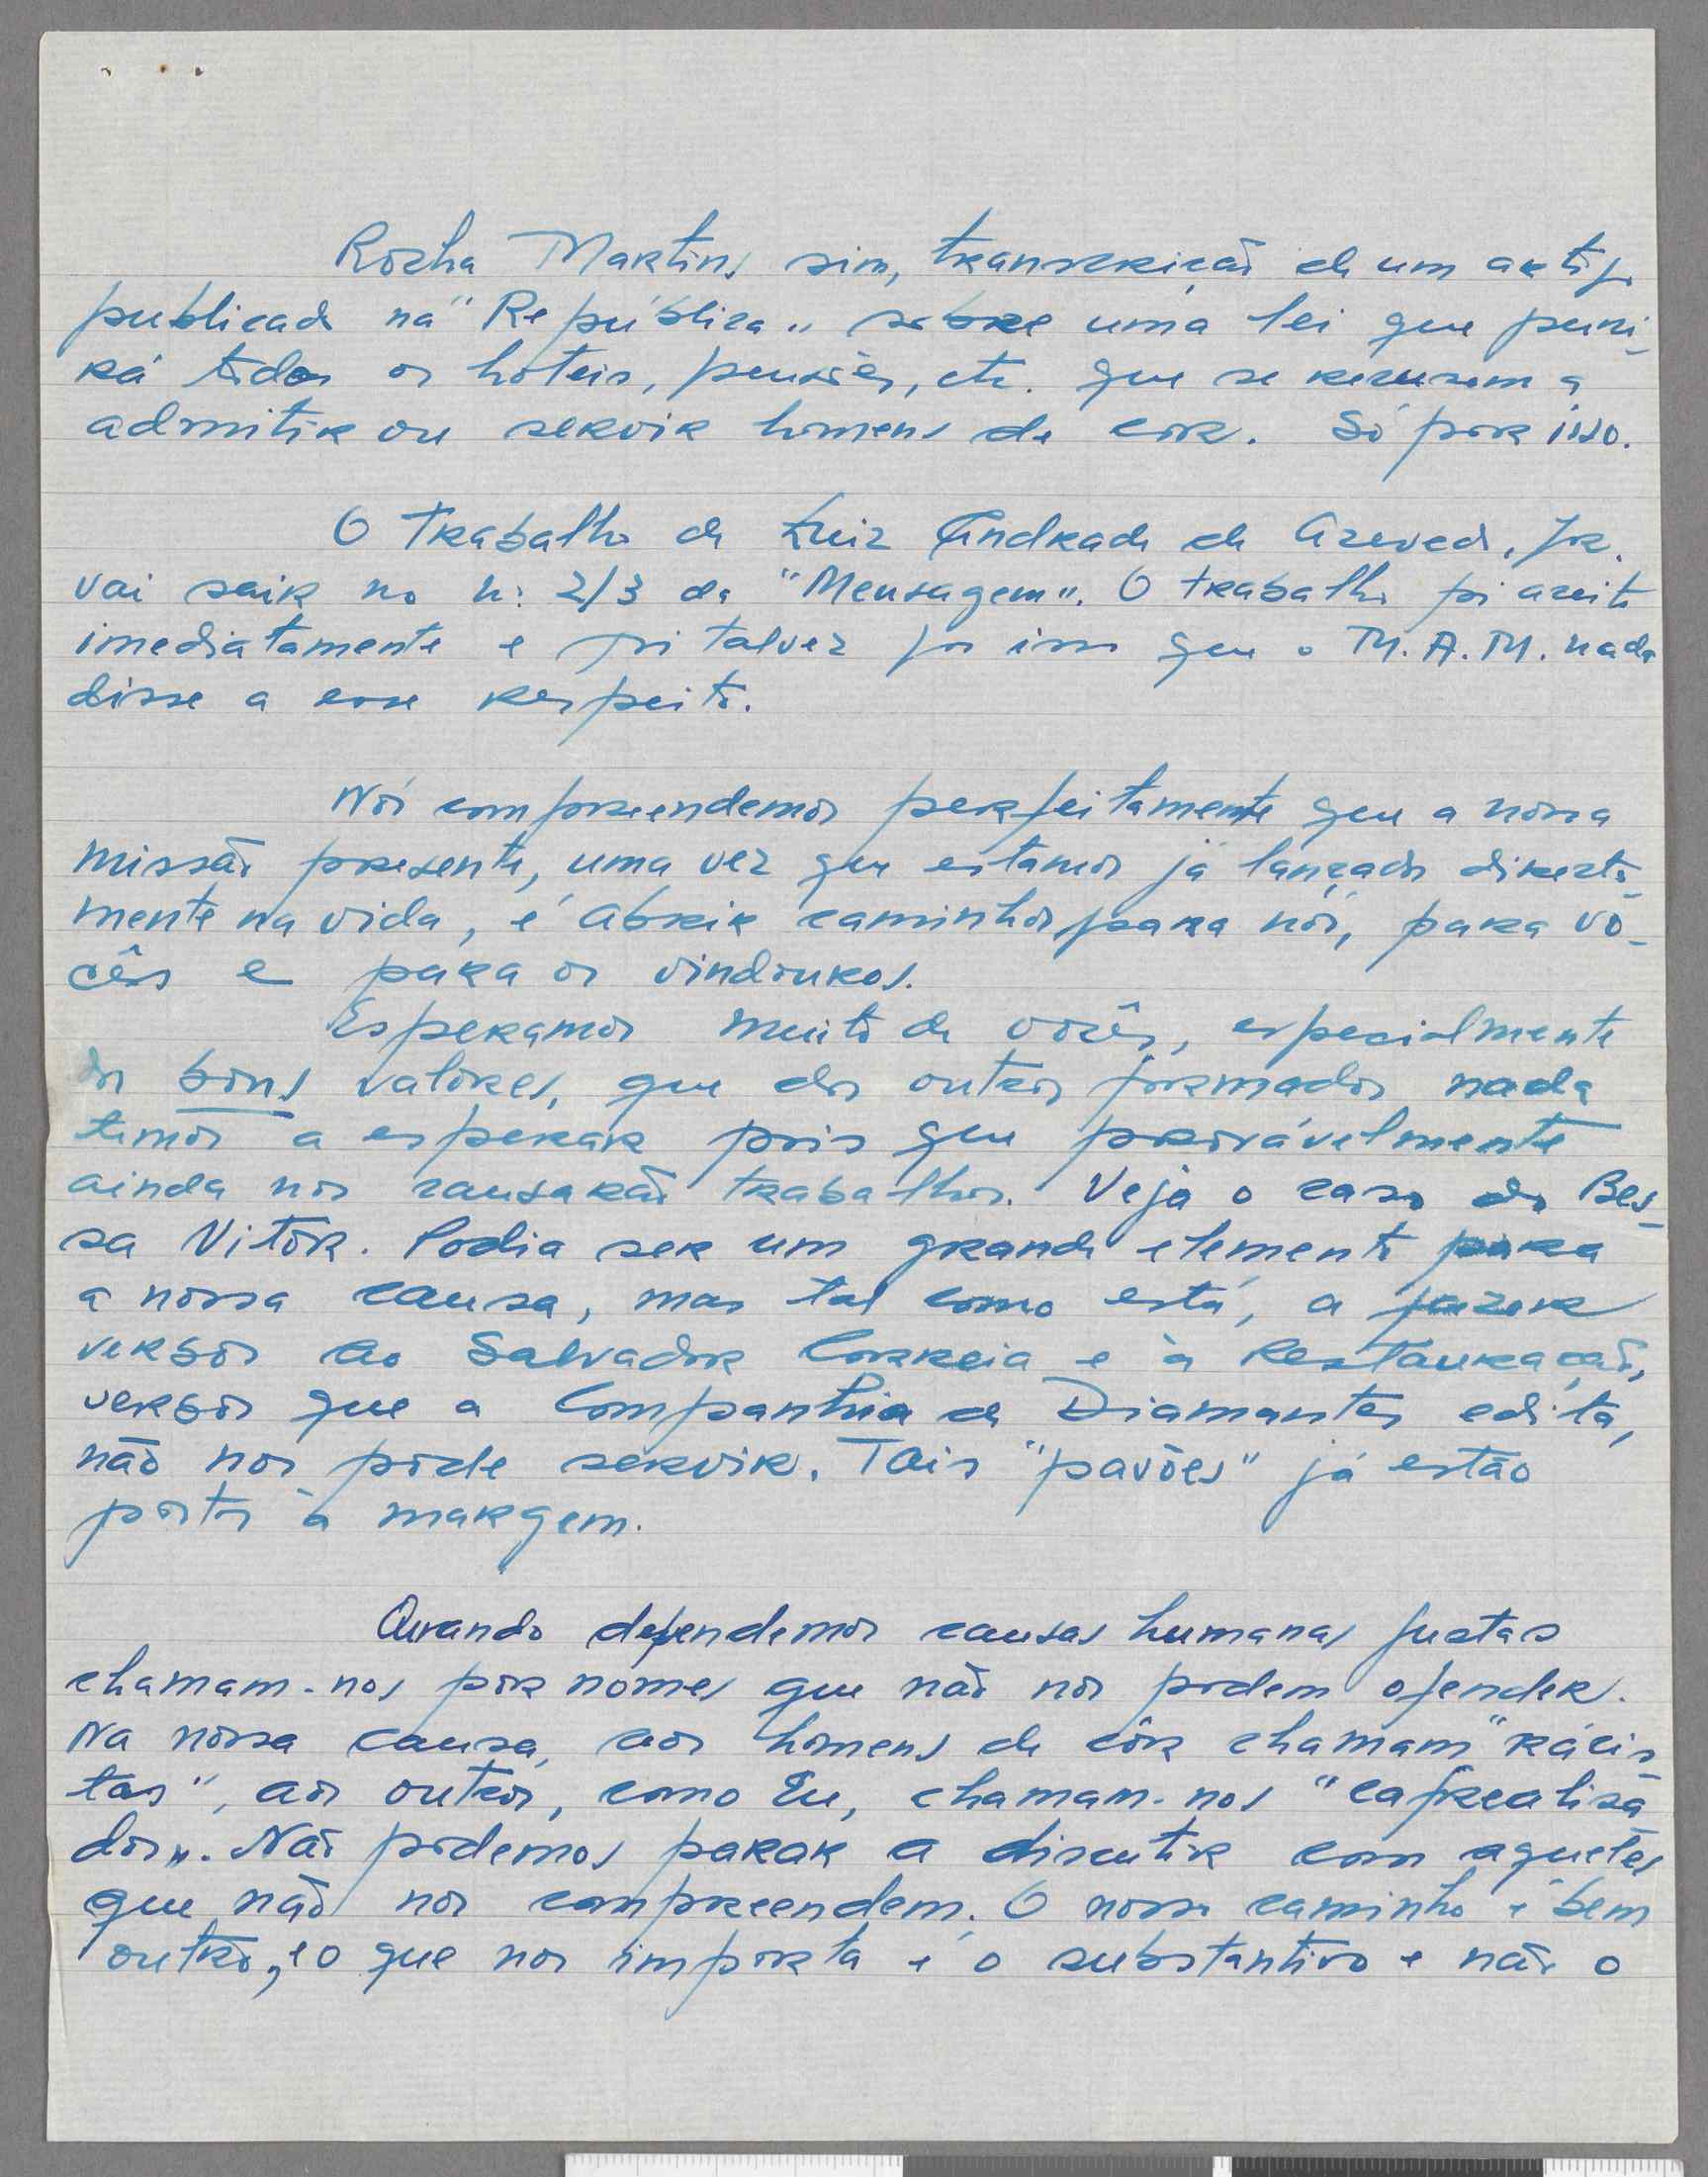 Rocha Martins sim, transcrição de um artigo
publicado na "República" sobre uma lei que puni-
rá todos os hoteis, pensões, etc. que se recusem a
admitir ou servir homens de cor. Só por isso.
O trabalho de Luiz Andrade de Azevedo, Jr.
vai sair no nº 2/3 da "Mensagem". O trabalho foi aceite
imediatamente e foi talvez por isso que o M.A.M. nada
disse a esse respeito.
Nós compreendemos perfeitamente que a nossa
missão presente, uma vez que estamos já lançados directa-
mente na vida, é abrir caminhos para nós, para vo-
cês e para os vindouros.
Esperamos muito de vocês, especialmente
dos bons valores, que dos outros formados nada
temos a esperar pois que provávelmente
ainda nos causarão trabalhos. Veja o caso do Bes-
sa Vitor. Podia ser um grande elemento para
a nossa causa, mas tal como está, a fazer
versos ao Salvador Correia e à Restauração,
versos que a Companhia de Diamantes edita,
não nos pode servir. Tais "pavões" já estão
postos à margem.
Quando defendemos causas humanas justas
chamam-nos por nomes que não nos podem ofender.
Na nossa causa, aos homens de côr chamam "rácis-
tas", aos outros, como Eu, chamam-nos "cafrealisa-
dos". Não podemos parar a discutir com aqueles
que não nos compreendem. O nosso caminho é bem
outro, e o que nos importa é o substantivo e não o